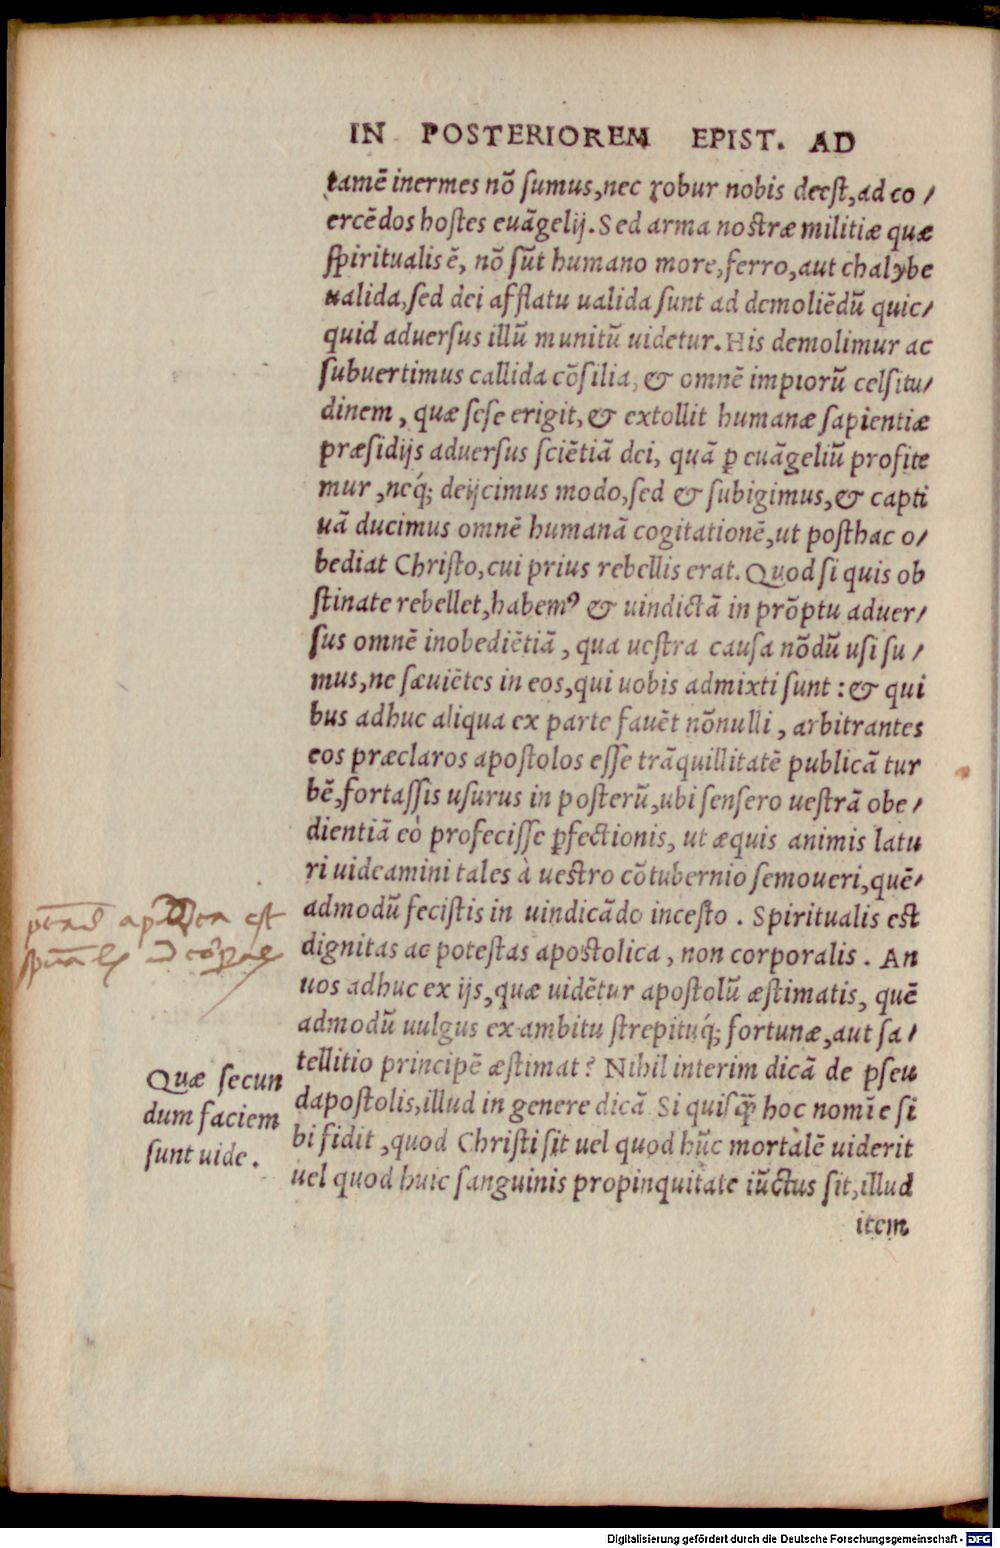 IN POSTERIOREM EPIST. AD
tamē inermes nō sumus, nec robur nobis deest, ad co/
ercēdos hostes euāgelij. Sed arma nostræ militiæ quæ
spiritualis ē, nō sūt humano more, ferro, aut chalybe
ualida, sed dei afflatu ualida sunt ad demoliēdū quic/
quid aduersus illū munitū uidetur. His demolimur ac
subuertimus callida cōsilia, & omnē impiorū celsitu/
dinem, quæ sese erigit, & extollit humanæ sapientiæ
præsidijs aduersus sciētiā dei, quā ꝑ euāgeliū profite
mur, neq́; deijcimus modo, sed & subigimus, & capti
uā ducimus omnē humanā cogitationē, ut posthac o/
bediat Christo, cui prius rebellis erat. Quod si quis ob
stinate rebellet, habemꝰ & uindictā in prōptu aduer/
sus omnē inobediētiā, qua uestra causa nōdū usi su/
mus, ne sæuiētes in eos, qui uobis admixti sunt: & qui
bus adhuc aliqua ex parte fauēt nōnulli, arbitrantes
eos præclaros apostolos esse trāquillitatē publicā tur
bē, fortassis usurus in posterū, ubi sensero uestrā obe/
dientiā eò profecisse ꝑfectionis, ut æquis animis latu
ri uideamini tales à uestro cōtubernio semoueri, quē/
admodū fecistis in uindicādo incesto. Spiritualis est
dignitas ac potestas apostolica, non corporalis. An
uos adhuc ex ijs, quæ uidētur apostolū æstimatis, quē
admodū uulgus ex ambitu strepituq́; fortunæ, aut sa/
tellitio principē æstimat? Nihil interim dicā de pseu
dapostolis, illud in genere dicā Si quisꝙ̄ hoc nomīe si
bi fidit, quod Christi sit uel quod hūc mortalē uiderit
uel quod huic sanguinis propinquitate iūctus sit, illud
item
est
Quæ secun
dum faciem
sunt uide.
Digitalisierung gefördert durch die Deutsche Forschungsgemeinschaft - DFG